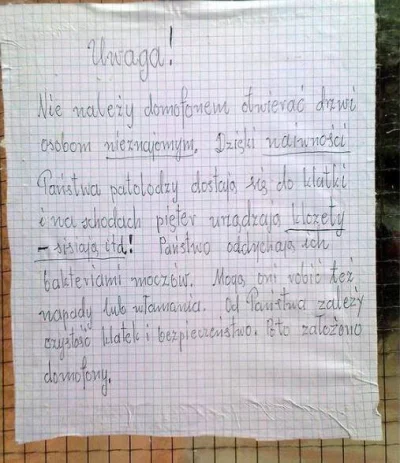 Uwaga!
Nie należy domofonem otwierać drzwi
osobom nieznajomym. Dzięki naiwności
Państwa patolodzy dostają się do klatki
i na schodach pięter urządzają klozety
– sisiają itd! Państwo oddychają ich
bakteriami moczów. Mogą oni robić też
napady lub włamania. Od Państwa zależy
czystość klatek i bezpieczeństwo. Po to założono
domofony.